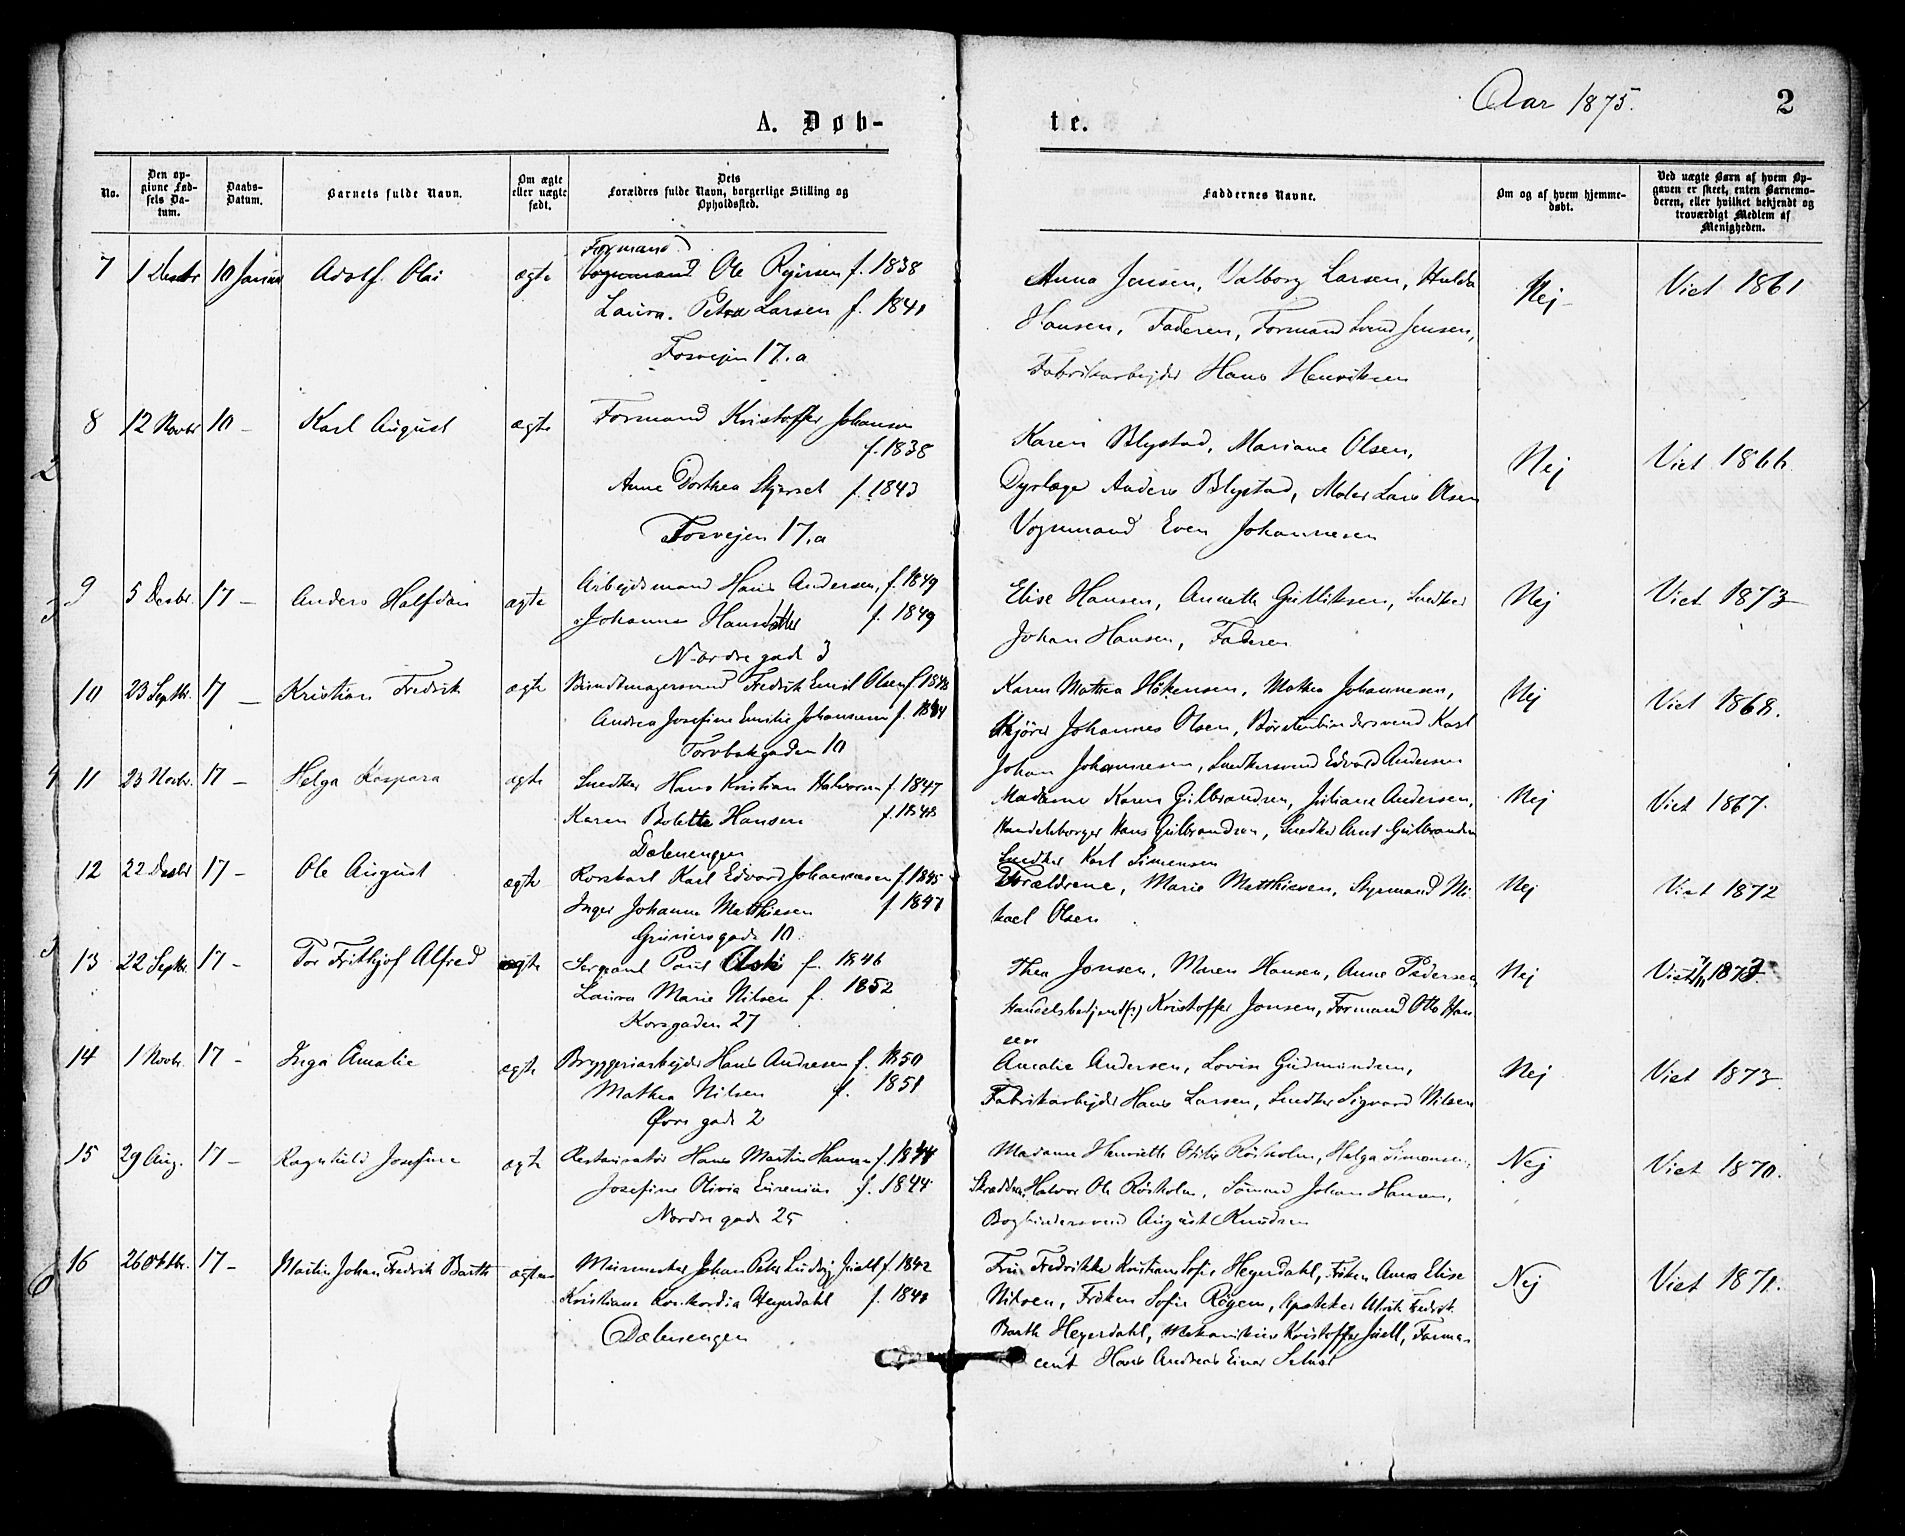 Aar 1875.
2
A. Døb-
te.
No.
Den op-
givne Fød-
sels Da-
tum.
Daabs-
Datum.
Barnets fulde Navn.
Om ægte
eller uægte
født.
Dets
Forældres fulde Navn, borgerlige Stilling og
Opholdssted.
Faddernes Navne.
Om og af hvem hjemme-
døbt.
Ved uægte Barn af hvem Op-
gaven er skeet, enten Barnemo-
deren, eller hvilket bekjendt og
troværdigt Medlem af
Menigheden.
7 1 Desbr 10 Januar Adolf Olai ægte Formand Ole f. 1838
Laura Petra Larsen f. 1841
Fosvejen 17.a
Anna Jensen, Valborg Larsen, Hulda
Hansen, Faderen, Formand Svend Jensen,
Fabrikarbejder Hans Henriksen
Nej Viet 1861
8 12 Novbr 10 - Karl August ægte Formand Kristoffer Johansen
f. 1838
Anne Dorthea f. 1843
Fosvejen 17.a
Karen Blystad, Mariane Olsen,
Dyrlæge Anders Blystad, Maler Lars Olsen
Vognmand Even Johannesen
Nej Viet 1866
9 5 Desbr. 17 - Anders Halfdan ægte Arbejdsmand Hans Andersen, f. 1849
Johanne Hansdatter f. 1849
Nordregade 3
Elise Hansen, Annette Gulliksen, Snedker
Johan Hansen, Faderen
Nej Viet 1873
10 23 Septbr. 17 - Kristian Fredrik ægte Buntmagersvend Fredrik Emil Olsen f.
Andrea Josefine Emilie Johansen f.
Torvbakgaden 10
Karen Mathea Håkensen, Mathea Johannesen,
Kjører Johannes Olsen, Børstenbindersvend Karl
Johan Johannesen, Snedkersvend Edvard Andersen
Nej Viet 1868.
11 23 Novbr. 17 - Helga Kaspara ægte Snedker Hans Kristian Halvorsen f. 1847
Karen Bolette Hansen f. 1848
Dælenengen
Madame Karen Gulbrandsen, Juliane Andersen,
Handelsborger Hans Gulbrandsen, Snedker Arnt Gulbrandsen
Snedker Karl Simensen
Nej Viet 1867.
12 22 Desbr 17 - Ole August ægte Karl Edvard Johannesen f. 1845
Inger Johanne Matthiesen f. 1847
Grünersgade 10.
Forældrene, Marie Matthiesen, Styrmand Mi-
kael Olsen
Nej Viet 1872
13 22 Septbr. 17 - Tor Frithjof Alfred ægte Sergeant Paul Aski f. 1846
Laura Marie Nilsen f. 1852
Korsgaden 27
Thea Jonsen, Maren Hansen, Anne Pedersen
Handelsbetjent Kristoffer Jonsen, Formand Otto Han-
sen
Nej Viet 1873.
14 1 Novbr. 17 - Inga Amalie ægte Bryggeriarbejder Hans Andresen f. 1850
Mathea Nilsen f. 1851
Øvregade 2
Amalie Andersen, Lovise Gudmundsen,
Fabrikarbejder Hans Larsen, Snedker Sigvard Nilsen
Nej Viet 1873.
15 29 Aug. 17 - Ragnhild Josefine ægte Restauratør Hans Martin Hansen f. 1844
Josefine Olivia Eurenius f. 1844
Nordregade 25
Madame Henriette Otilie Røsholm, Helga Simensen,
Skrædder Halvor Ole Røsholm, Sømand Johan Hansen,
Bogbindersvend August Knudsen
Nej Viet 1870.
16 26 Oktbr. 17 - Martin Johan Fredrik Barth ægte Murmester Johan Peter Ludvig Juell f. 1842
Kristiane Konkordia Heyerdahl f. 1841
Dælenengen
Fru Fredrikke Kristiane Sofie Heyerdahl, Frøken Anna Elise
Nilsen, Frøken Sofie Røgen, Apoteker Ulrik Fredrik
Barth Heyerdahl, Mekanikus Kristoffer Juell, Farma-
ceut Hans Andreas Einar
Nej Viet 1871.